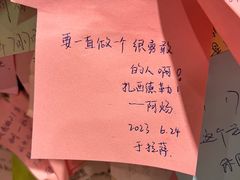 要一直做一个很勇敢
的人啊!
扎西德勒!
——阿妈
2023 6.24
于拉萨.